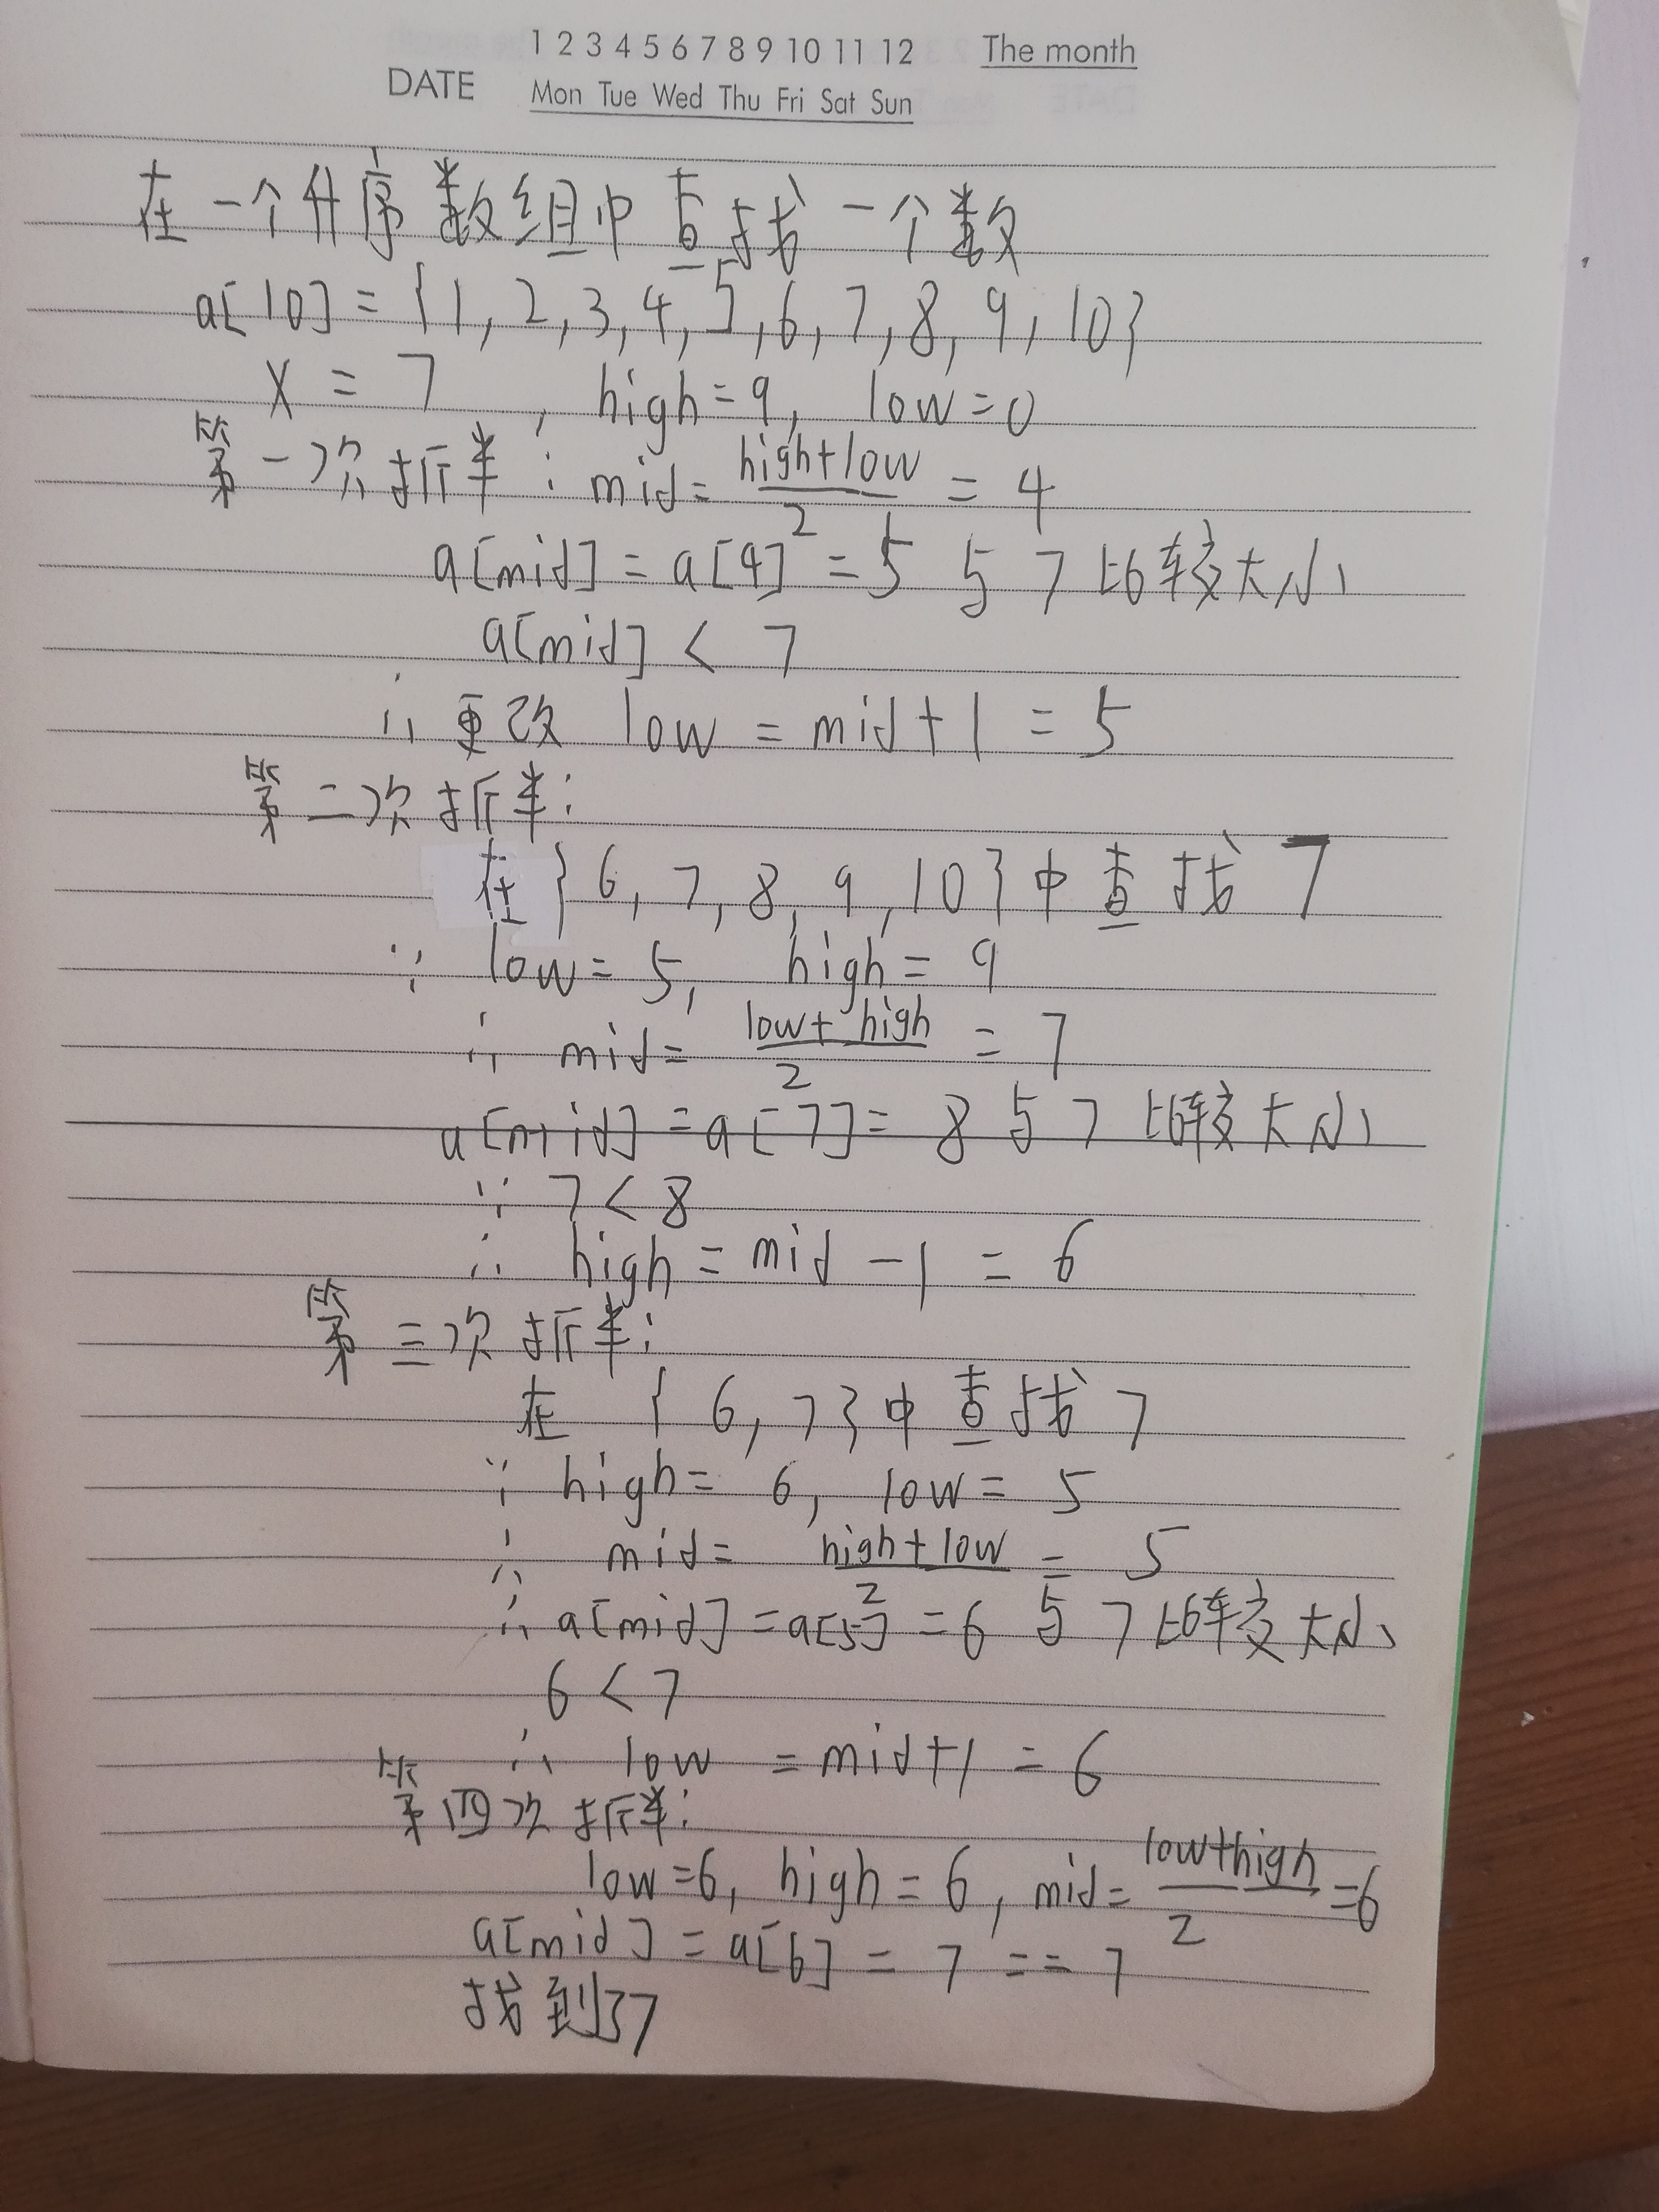 1 2 3 4 5 6 7 8 9 10 11 12 The month
DATE Mon Tue Wed Thu Fri Sat Sun
在一个升序数组中查找一个数
a[10] = {1, 2, 3, 4, 5, 6, 7, 8, 9, 10}
x = 7, high=9, low=0
第一次折半: mid= high+low / 2 = 4
a[mid] = a[4] = 5 与 7 比较大小
a[mid] < 7
∴ 更改 low = mid+1 = 5
第二次折半:
在 {6, 7, 8, 9, 10} 中查找 7
∵ low = 5, high = 9
∴ mid = low+high / 2 = 7
a[mid] = a[7] = 8 与 7 比较大小
∵ 7 < 8
∴ high = mid - 1 = 6
第三次折半:
在 {6, 7} 中查找 7
∵ high = 6, low = 5
∴ mid = high+low / 2 = 5
∴ a[mid] = a[5] = 6 与 7 比较大小
6 < 7
∴ low = mid+1 = 6
第四次折半:
low=6, high = 6, mid= low+high / 2 =6
a[mid] = a[6] = 7 == 7
找到了7